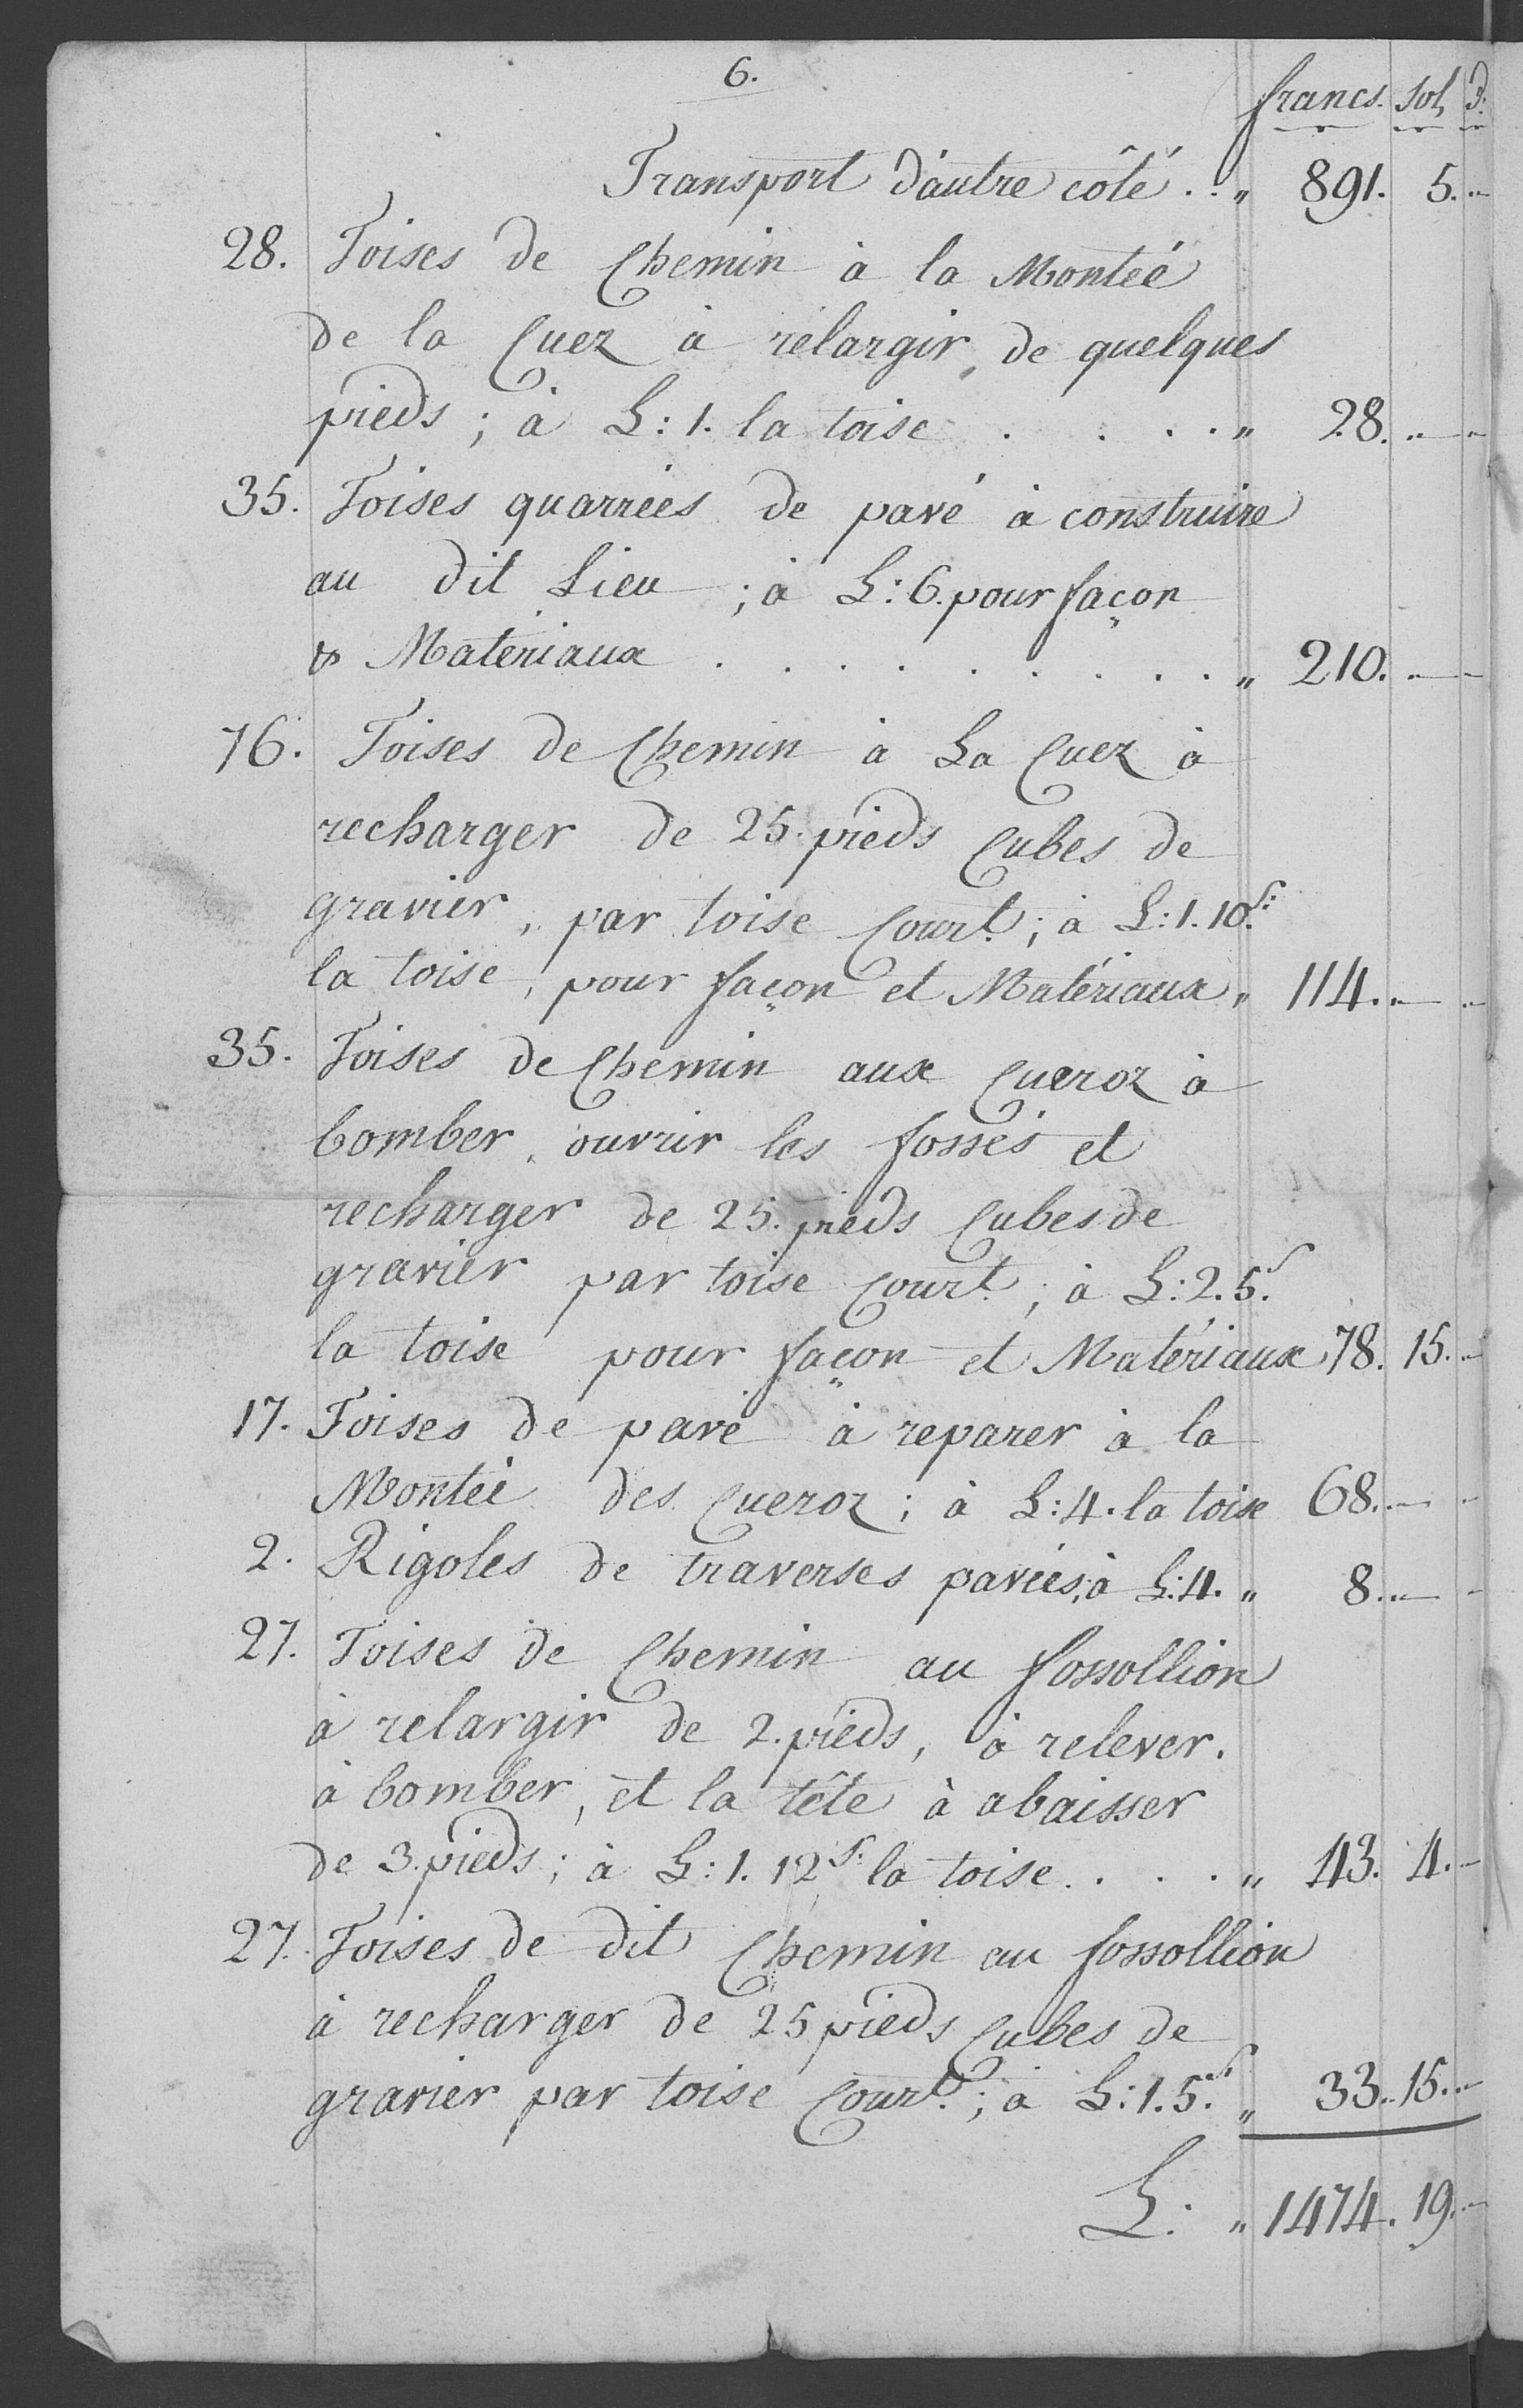 6.
francs. sol, d.
Transport d'autre côté . . „ 891. 5. „
28. Toises de Chemin à la Monteé
de la Cuez à relargir, de quelques
pieds ; à L: 1. la toise . . . . „ 28. „ „
35. Toises quarrées de pavé à construire
au dit Lieu ; à L: 6. pour façon
& Matériaux . . . . . . . . . „ 210. „
76. Toises de Chemin à La Cuez à
recharger de 25. pieds Cubes de
gravier, par toise Courte ; à L: 1. 10s:
la toise, pour façon et Matériaux „ 114. „ „
35. Toises de Chemin aux Cueroz à
bomber, ouvrir les fossés et
recharger de 25. pieds Cubes de
gravier par toise Courte ; à L: 2. 5s.
la toise pour façon et Matériaux 78. 15. „
17. Toises de pavé à reparer à la
Monteé des Cueroz ; à L: 4. la toise 68. „ „
2. Rigoles de traverses pavées ; à L: 4. „ 8. „ „
27. Toises de Chemin au fossollion
à relargir de 2. pieds, à relever.
à bomber, et la tête à abaisser
de 3. pieds ; à L: 1. 12s: la toise . . . . „ 43. 4. „
27. Toises de dit Chemin au fossollion
à recharger de 25 pieds Cubes de
gravier par toise Courte ; à L: 1. 5s. „ 33. 15. „
L: „ 1474. 19. „